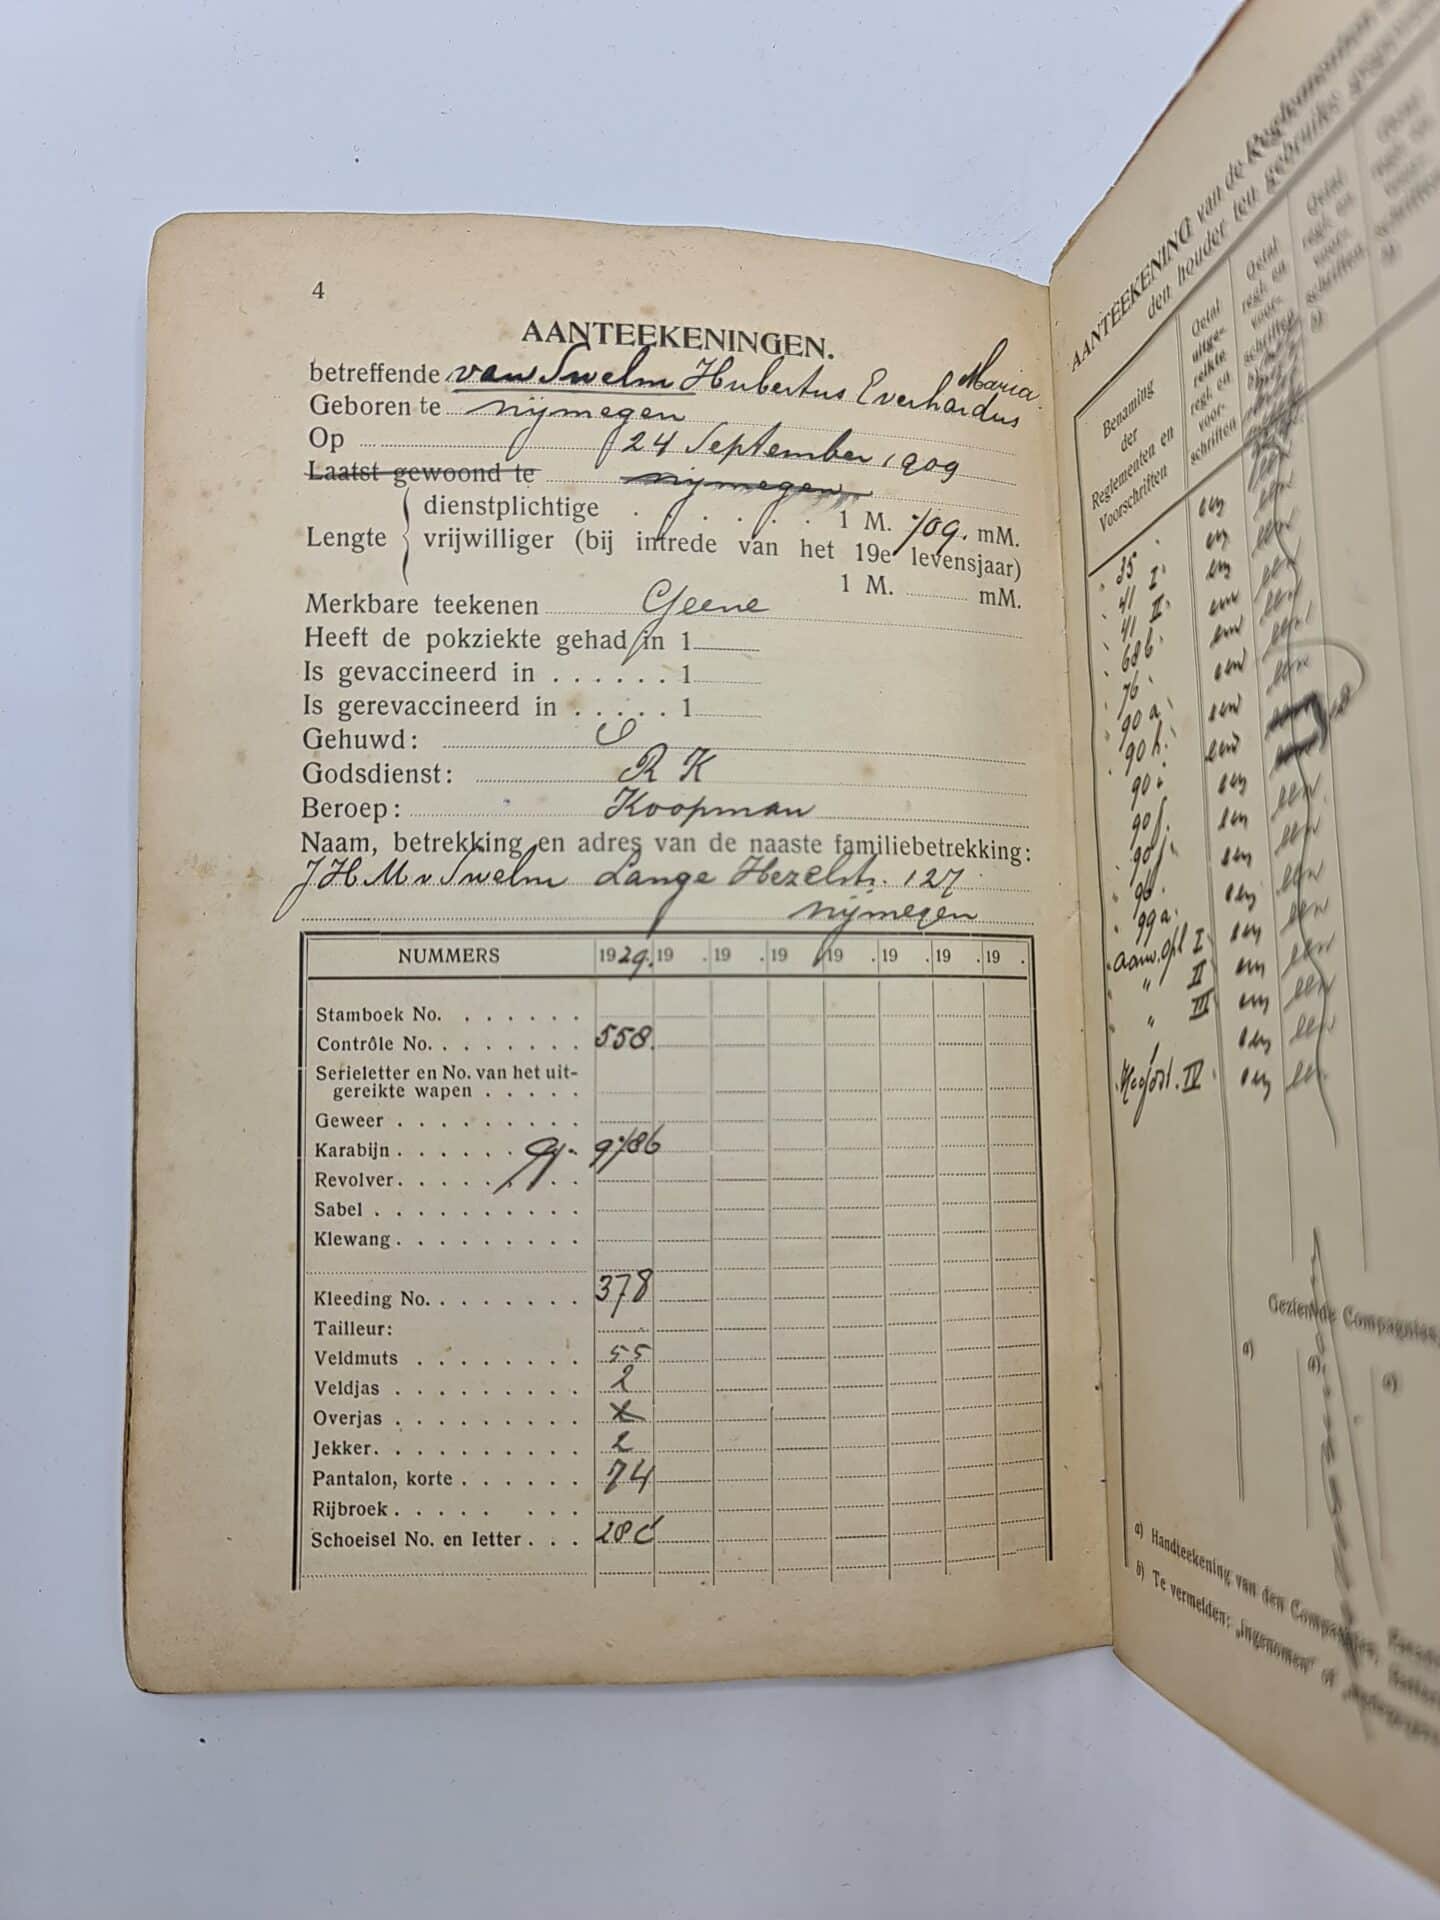 4
AANTEEKENINGEN.
betreffende van Swelm Hubertus Everhardus Maria.
Geboren te nijmegen
Op 24 September 1909
Laatst gewoond te nijmegen
dienstplichtige . . . . . . 1 M. 709. mM.
Lengte vrijwilliger (bij intrede van het 19e levensjaar)
1 M. mM.
Merkbare teekenen Geene
Heeft de pokziekte gehad in 1
Is gevaccineerd in . . . . . . 1
Is gerevaccineerd in . . . . . 1
Gehuwd:
Godsdienst: R K
Beroep: Koopman
Naam, betrekking en adres van de naaste familiebetrekking:
J H M v Swelm Lange Hezelstr. 127
nijmegen
NUMMERS 1929. 19 . 19 . 19 . 19 . 19 . 19 . 19 .
Stamboek No. . . . . . .
Contrôle No. . . . . . . . 558.
Serieletter en No. van het uit-
gereikte wapen . . . . .
Geweer . . . . . . . . .
Karabijn . . . . . . 9786
Revolver . . . . . . . . .
Sabel . . . . . . . . . .
Klewang . . . . . . . . .
Kleeding No. . . . . . . . 378
Tailleur:
Veldmuts . . . . . . . . 55
Veldjas . . . . . . . . . 2
Overjas . . . . . . . . . x
Jekker . . . . . . . . . . 2
Pantalon, korte . . . . . . 74
Rijbroek . . . . . . . .
Schoeisel No. en letter . . . 28 C
AANTEEKENING van de Reglementen
den houder ten gebruike
Benaming
der
Reglementen en
Voorschriften
Getal
uitge-
reikte
regl. en
voor-
schriften
Getal
regl. en
voor-
schriften
a)
Getal
regl. en
voor-
schriften
a)
35 een een
41 I een een
41 II een een
68b een een
76 een een
90 a een een
90 h een
90 i een
90 j een een
96 een een
99a een een
I een een
" II een een
" III een een
IV een een
Geziende Compagnies
a) a) a)
a) Handteekening van den Compagnies,
b) Te vermelden: „Ingenomen" of